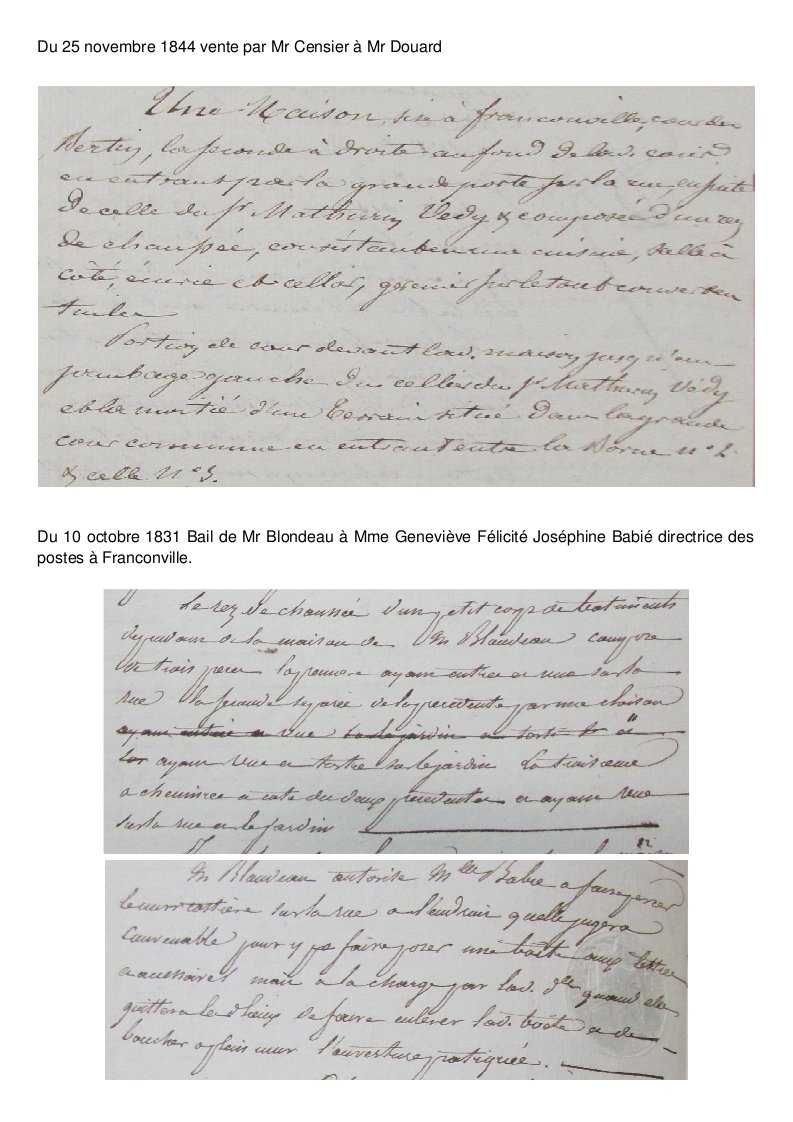 Du 25 novembre 1844 vente par Mr Censier à Mr Douard
Une Maison, sise à franconville, cour des
Bertin, la seconde à droite au fond de lad. cour
en entrant par la grande porte sur la rue, ensuite
de celle du Sr Mathurin Védy & composée d'un rez
de chaussée, consistant en une cuisine, salle à
côté, écurie et cellier, grenier sur le tout couvert en
tuiles
Portion de cour devant lad. maison jusqu'au
jambage gauche du cellier du Sr Mathurin Védy
et la moitié d'un terrain situé dans la grande
cour commune en entrant entre la Borne n° 2
& celle N° 3.
Du 10 octobre 1831 Bail de Mr Blondeau à Mme Geneviève Félicité Joséphine Babié directrice des
postes à Franconville.
Le rez de chaussée d'un petit corps de batiments
dependant de la maison de M Blondeau composé
de trois pieces la premiere ayant entrée et vue sur la
rue la seconde separée de la precedente par une cloison
ayant entrée et vue sur le jardin et sortie
ayant vue et sortie sur le jardin La troisieme
a cheminée a coté des deux precedentes et ayant vue
sur la rue et le jardin
M Blondeau autorise Mlle Babié a faire percer
le mur costière sur la rue a l'endroit quelle jugera
convenable pour y faire poser une boëte aux lettres
et accessoires mais a la charge par lad. dlle quand elle
quittera lesd lieux de faire enlever lad. boëte et de
boucher a plein mur l'ouverture pratiquée.